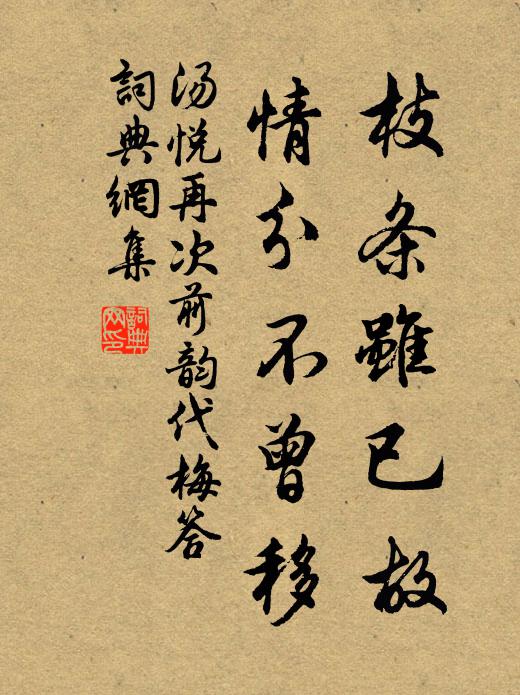 枝条雖已故
情分不曾移
汤悦再次前韵代梅答
詞典網集
詞典网印